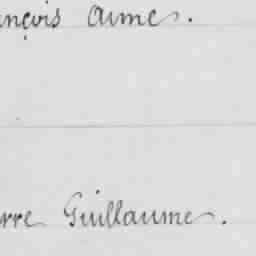 ançois Aimé.
rre Guillaume.